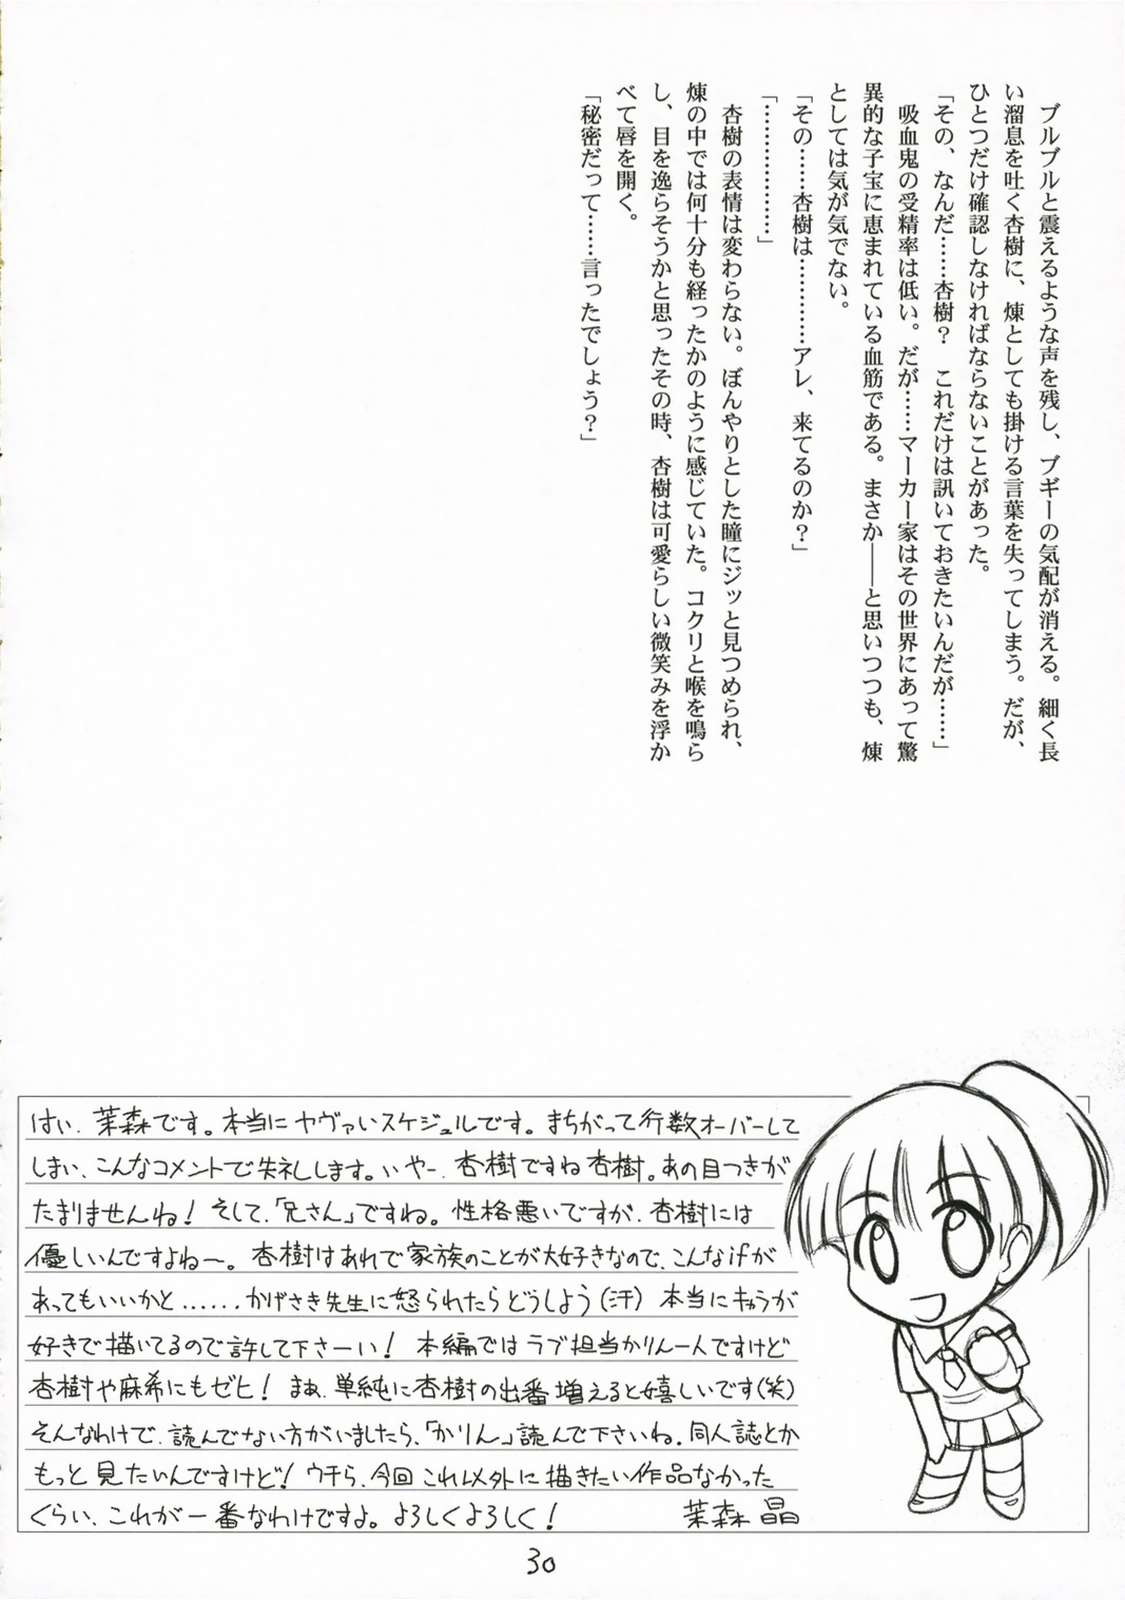 ブルブルと震えるような声を残し、ブギーの気配が消える。細く長
い溜息を吐く杏樹に、煉としても掛ける言葉を失ってしまう。だが、
ひとつだけ確認しなければならないことがあった。
「その、なんだ……杏樹？　これだけは訊いておきたいんだが……」
　吸血鬼の受精率は低い。だが……マーカー家はその世界にあって驚
異的な子宝に恵まれている血筋である。まさか――と思いつつも、煉
としては気が気でない。
「その……杏樹は…………アレ、来てるのか？」
「………………」
　杏樹の表情は変わらない。ぼんやりとした瞳にジッと見つめられ、
煉の中では何十分も経ったかのように感じていた。コクリと喉を鳴ら
し、目を逸らそうかと思ったその時、杏樹は可愛らしい微笑みを浮か
べて唇を開く。
「秘密だって……言ったでしょう？」
はい、茉森です。本当にヤヴァいスケジュルです。まちがって行数オーバーして
しまい、こんなコメントで失礼します。いやー、杏樹ですね杏樹。あの目つきが
たまりませんね！ そして、「兄さん」ですね。性格悪いですが、杏樹には
優しいんですよねー。杏樹はあれで家族のことが大好きなので、こんなifが
あってもいいかと……かげさき先生に怒られたらどうしよう（汗） 本当にキャラが
好きで描いてるので許して下さーい！ 本編ではラブ担当かりん一人ですけど
杏樹や麻希にもゼヒ！ まぁ、単純に杏樹の出番増えると嬉しいです（笑）
そんなわけで、読んでない方がいましたら、「かりん」読んで下さいね。同人誌とか
もっと見たいんですけど！ ウチら、今回これ以外に描きたい作品なかった
くらい、これが一番なわけですよ。よろしくよろしく！ 茉森 晶
30